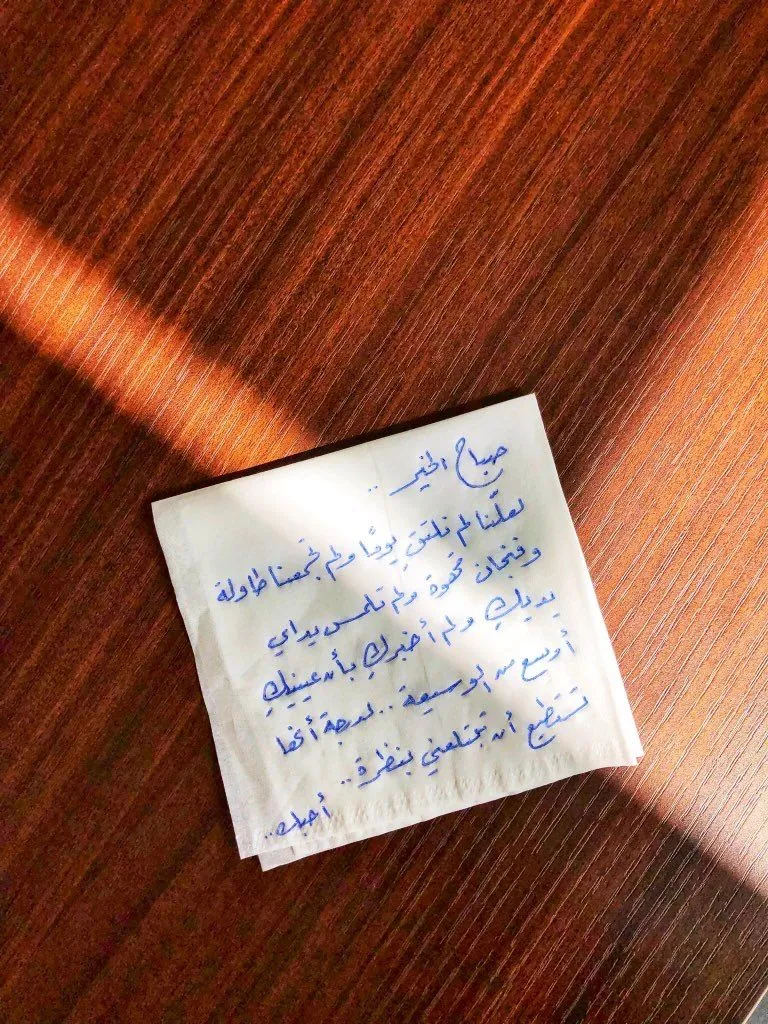 صباح الخير ..
لعلّنا لم نلتقِ يومًا ولم تجمعنا طاولة
وفنجان قهوة ولم تلمس يداي
يديكِ ولم أخبركِ بأن عينيكِ
أوسع من الوسيعة .. لدرجة أنها
تستطيع أن تبتلعني بنظرة ..
أحبك ..